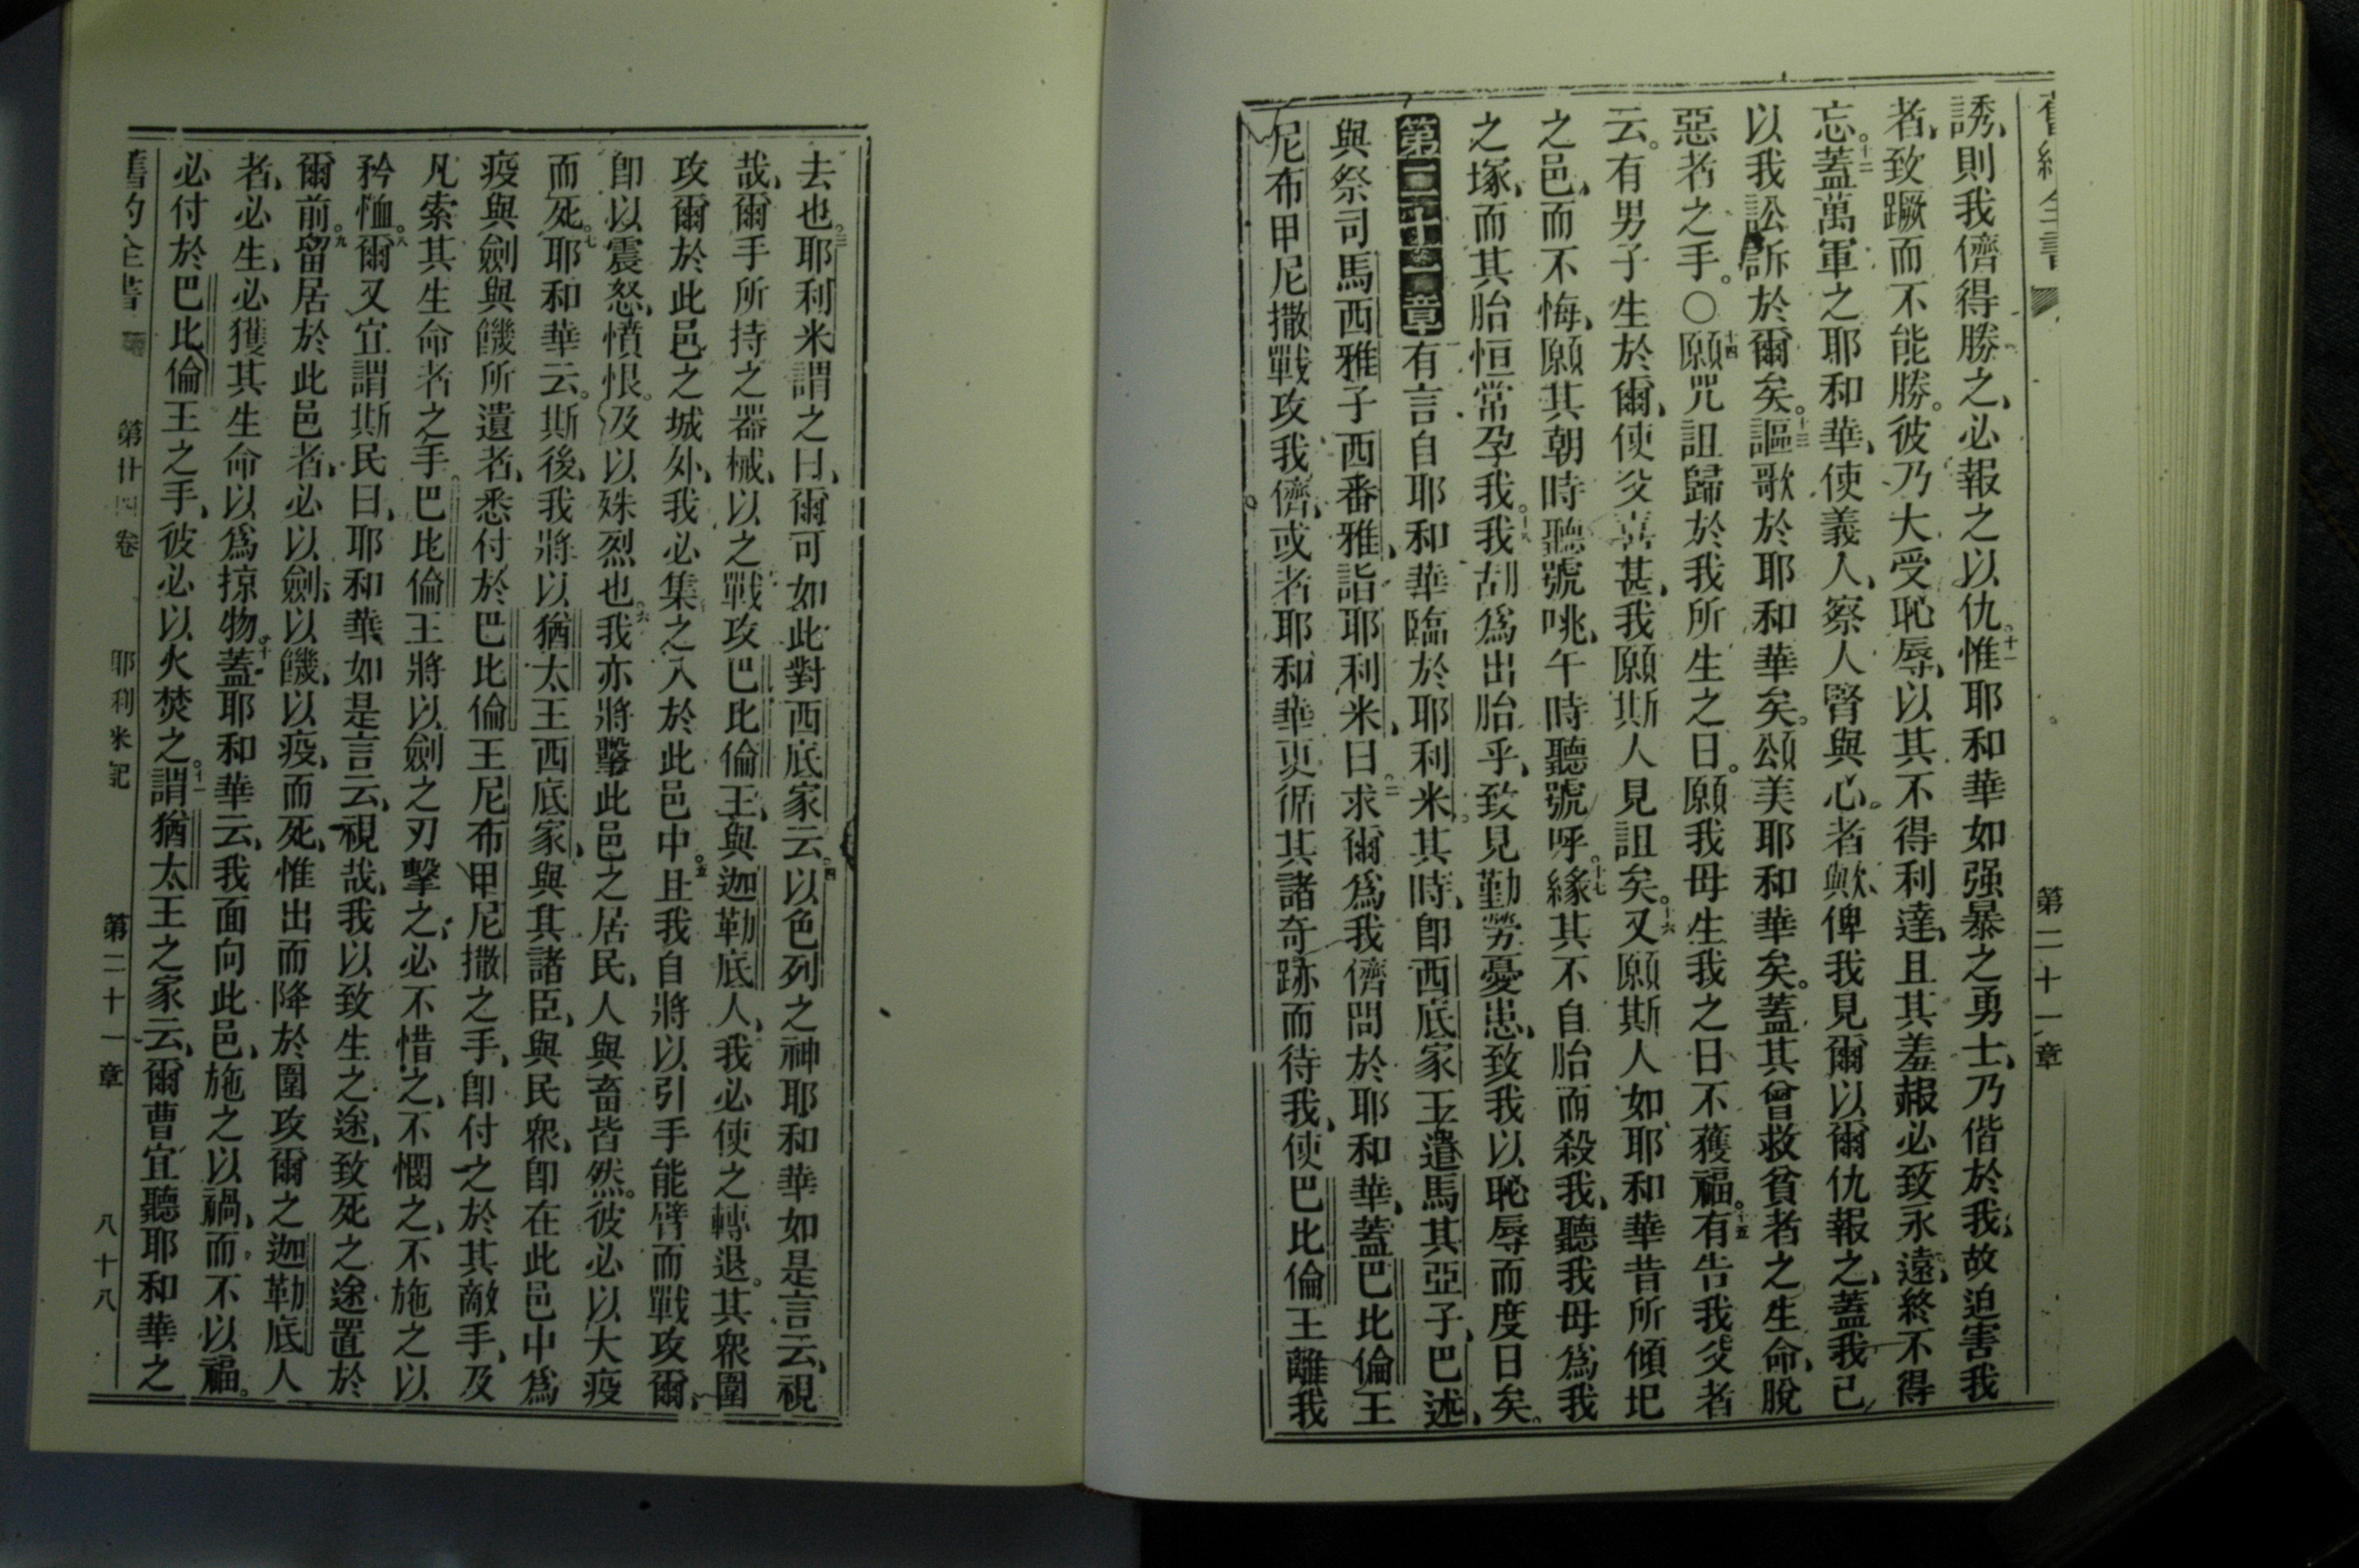 第二十一章
誘、則我儕得勝之、必報之以仇。十一惟耶和華如强暴之勇士、乃偕於我、故迫害我
者、致蹶而不能勝。彼乃大受恥辱、以其不得利達、且其羞赧必致永遠、終不得
忘。十二蓋萬軍之耶和華、使義人、察人腎與心。者歟、俾我見爾以爾仇報之、蓋我已
以我訟訴於爾矣。十三謳歌於耶和華矣。頌美耶和華矣。蓋其曾救貧者之生命、脫
惡者之手。〇十四願咒詛歸於我所生之日。願我母生我之日不獲福。十五有告我父者
云。有男子生於爾、使父喜甚、我願斯人見詛矣。十六又願斯人如耶和華昔所傾圯
之邑、而不悔、願其朝時聽號咷、午時聽號呼。十七緣其不自胎而殺我、聽我母爲我
之塚、而其胎恒常孕我。十八我胡爲出胎乎、致見勤勞憂患、致我以恥辱而度日矣。
第二十一章有言自耶和華臨於耶利米。其時、卽西底家王遣馬其亞子、巴述、
與祭司馬西雅子西番雅、詣耶利米、曰。二求爾爲我儕問於耶和華、蓋巴比倫王
尼布甲尼撒戰攻我儕、或者耶和華更循其諸奇跡而待我、使巴比倫王離我
去也。三耶利米謂之曰、爾可如此對西底家云。四以色列之神耶和華如是言云、視
哉、爾手所持之器械、以之戰攻巴比倫王、與迦勒底人、我必使之轉退。其衆圍
攻爾於此邑之城外、我必集之入於此邑中。五且我自將以引手能臂而戰攻爾、
卽以震怒、憤恨。及以殊烈也。六我亦將擊此邑之居民、人與畜皆然。彼必以大疫
而死。七耶和華云。斯後、我將以猶太王西底家、與其諸臣、與民衆、卽在此邑中爲
疫與劍與饑所遺者、悉付於巴比倫王尼布甲尼撒之手、卽付之於其敵手、及
凡索其生命者之手。巴比倫王將以劍之刃擊之、必不惜之、不憫之、不施之以
矜恤。八爾又宜謂斯民曰、耶和華如是言云、視哉、我以致生之途、致死之途置於
爾前。九留居於此邑者、必以劍、以饑、以疫、而死、惟出而降於圍攻爾之迦勒底人
者、必生、必獲其生命以爲掠物。十蓋耶和華云、我面向此邑、施之以禍、而不以福。
必付於巴比倫王之手、彼必以火焚之。十一謂猶太王之家云、爾曹宜聽耶和華之
舊約全書 第廿四卷 耶利米記 第二十一章 八十八